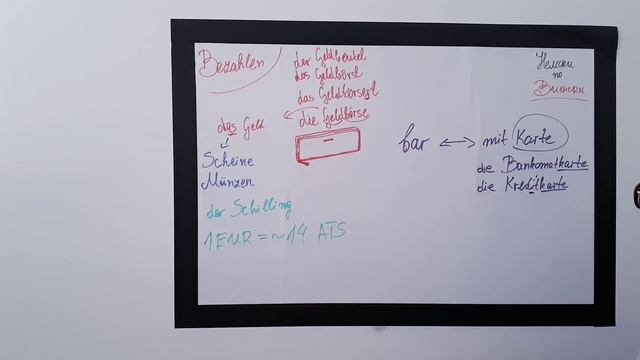 Bezahlen
der Geldbeutel
das Geldbörsl
das Geldbörserl
die Geldbörse
das Geld
Scheine
Münzen
der Schilling
1 EUR = ~14 ATS
bar ↔ mit Karte
die Bankomatkarte
die Kreditkarte
Немски
по
Виенски